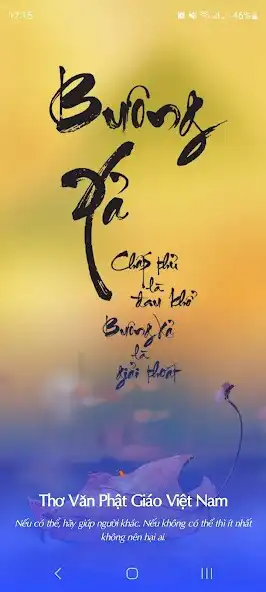 17:15
46%
Buông
Xả
Chấp thủ
là
đau khổ
Buông Xả
là
giải thoát
Thơ Văn Phật Giáo Việt Nam
Nếu có thể, hãy giúp người khác. Nếu không có thể thì ít nhất
không nên hại ai.